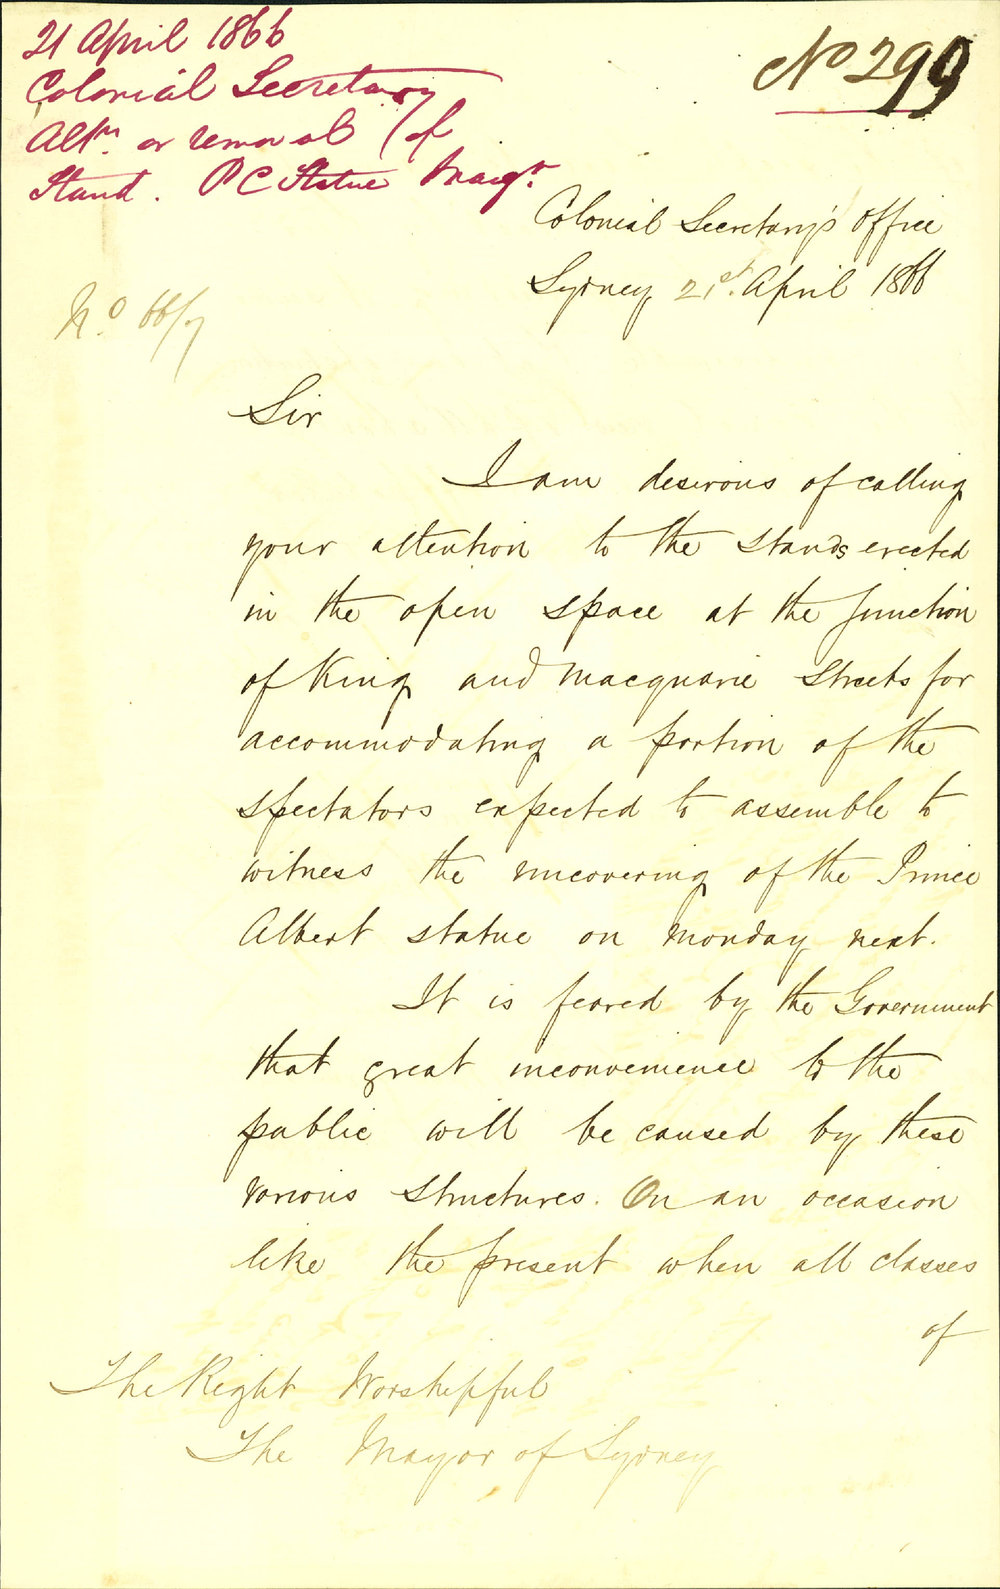 21 April 1866
Colonial Secretary
Altn. or removal of
Stand. P C Statue Macqe.
No 299
Colonial Secretary's Office
Sydney 21st. April 1866
No. 66/7
Sir
I am desirous of calling
your attention to the stands erected
in the open space at the junction
of King and Macquarie Streets for
accommodating a portion of the
spectators expected to assemble to
witness the uncovering of the Prince
Albert statue on Monday next.
It is feared by the Government
that great inconvenience to the
public will be caused by these
various structures. On an occasion
like the present when all classes
of
The Right Worshipful
The Mayor of Sydney